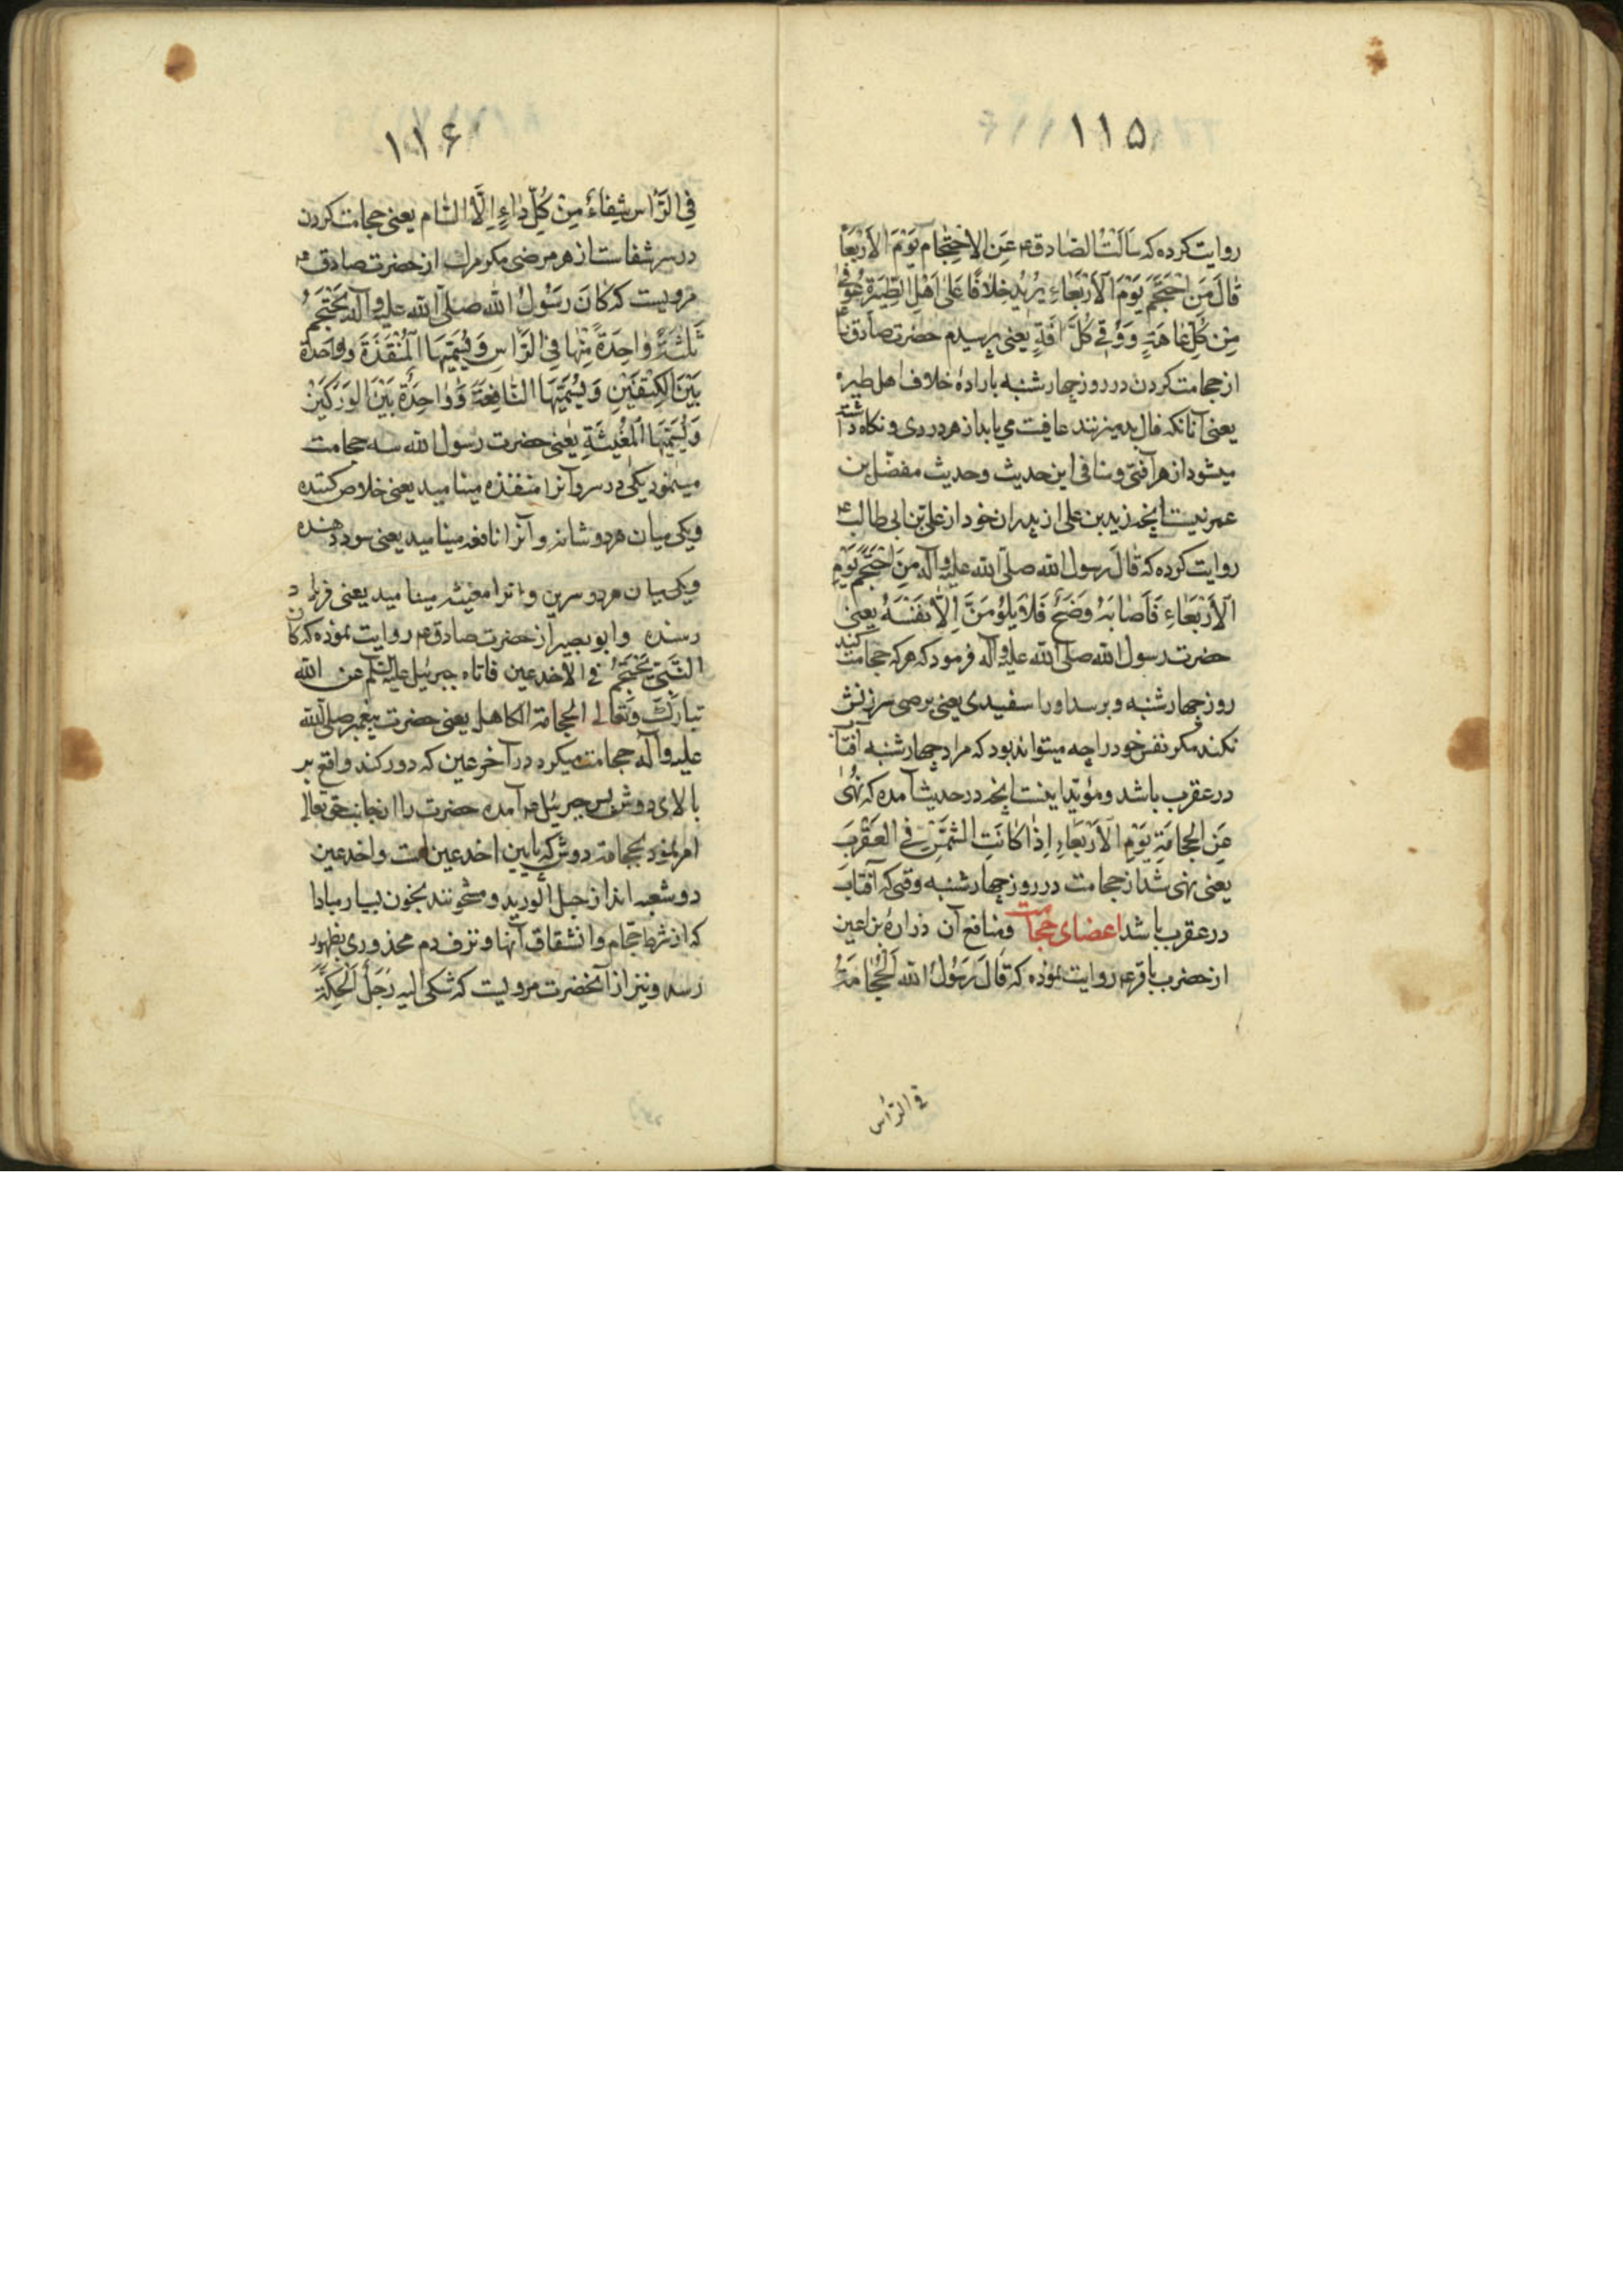 ۱۱۵
روایت کرده که سَاَلْتُ الصّادق ع عَنِ الاِحْتِجام یَوْمَ الاَرْبَعَا
قالَ مَنِ احْتَجَمَ یَوْمَ الاَرْبَعاءِ یُرْیدُ خِلافًا عَلی اَهْلِ الطِّیَرَةِ عُوفِیَ
مِن کُلِّ عَاهَةٍ وَ وُقِیَ کُلَّ افَةٍ یعنی پرسیدم حضرت صادق را
از حجامت کردن در روز چهارشنبه بارادهٔ خلاف اهل طیره
یعنی آنانکه فال بد میزنند عافیت می یابد از هر دردی و نکاه داشته
میشود از هر آفتی و منافی این حدیث و حدیث مفضّل بن
عمر نیست آنچه زید بن علی از پدران خود از علی بن ابی طالب ع
روایت کرده که قالَ رسول الله صلّی الله علیه وآله مَنِ احْتَجَمَ یَوْمَ
الاَرْبَعَاءِ فَاَصَابَهُ وَضَحٌ فَلا یَلُوْمَنَّ اِلّا نَفْسَهُ یعنی
حضرت رسول الله صلی الله علیه وآله فرمود که هر که حجامت کند
روز چهارشنبه و برسد او را سفیدی یعنی برصی سرزنش
نکند مکر نفس خود را چه میتواند بود که مراد چهارشنبه آفتاب
در عقرب باشد و مؤیّد اینست آنچه در حدیث آمده که نُهِیَ
عَنِ الحِجامَةِ یَوْمَ الاَرْبَعَاءِ اِذا کانَتِ الشَّمْسُ فِی العَقْرَبِ
یعنی نهی شد از حجامت در روز چهارشنبه وقتی که آفتاب
در عقرب باشد اعضای حجامت و منافع آن زرارة بن اعین
از حضرت باقر ع روایت نموده که قالَ رَسُوْلُ الله اَلْحِجَامَةُ
فی الرّأس
۱۱۶
فِی الرَّأسِ شِفاءٌ مِنْ کُلِّ داءٍ اِلَّا السّام یعنی حجامت کردن
در سر شفاست از هر مرضی مکر مرك از حضرت صادق ع
مرویست که کانَ رسُوْلُ الله صلّی الله علیه وآله یَحْتَجِمُ
ثَلٰثَةً وٰاحِدَةً مِنْها فِی الرَّاسِ وَ یُسَمِّیْهَا الْمُنْقِذَةَ وَ واحِدَةً
بَیْنَ الکِتْفَیْنِ وَ یُسَمِّیْهَا النّافِعَةَ وَ وٰاحِدَةً بَیْنَ الوَرْکَیْنِ
وَ یُسَمِّیْهَا المُغِیْثَةِ یَعْنی حضرت رسول الله سه حجامت
مینمود یکی در سر و آنرا منقذه مینامید یعنی خلاص کننده
و یکی میان هر دو شانه و آنرا نافعه مینامید یعنی سود دهنده
و یکی میان هر دو سرین و انرا مغیثه مینامید یعنی فریاد
رسنده و ابو بصیر از حضرت صادق ع روایت نموده که کان
النَّبِیُّ یَحْتَجِمُ فی الاخدعین فاتاه جبرئیل علیه السّلم عن الله
تبارك و تَعٰالی بحجامة الکاهل یعنی حضرت پیغمبر صلی الله
علیه وآله حجامت میکرد در اخدعین که دو رکند واقع بر
بالای دوش پس جبرئیل فرآمده حضرت را از جانب حق تعالی
امر نمود بحجامة دوش که پایین اخدعین است و اخدعین
دو شعبه اند از حبل الورید و مشحونند بخون بسیار مبادا
که از شرط حجام و انشقاق آنها و نزف دم محذوری بظهور
رسد و نیز از آنحضرت مرویست که شکی الیه رَجُلٌ الحِکَّةَ